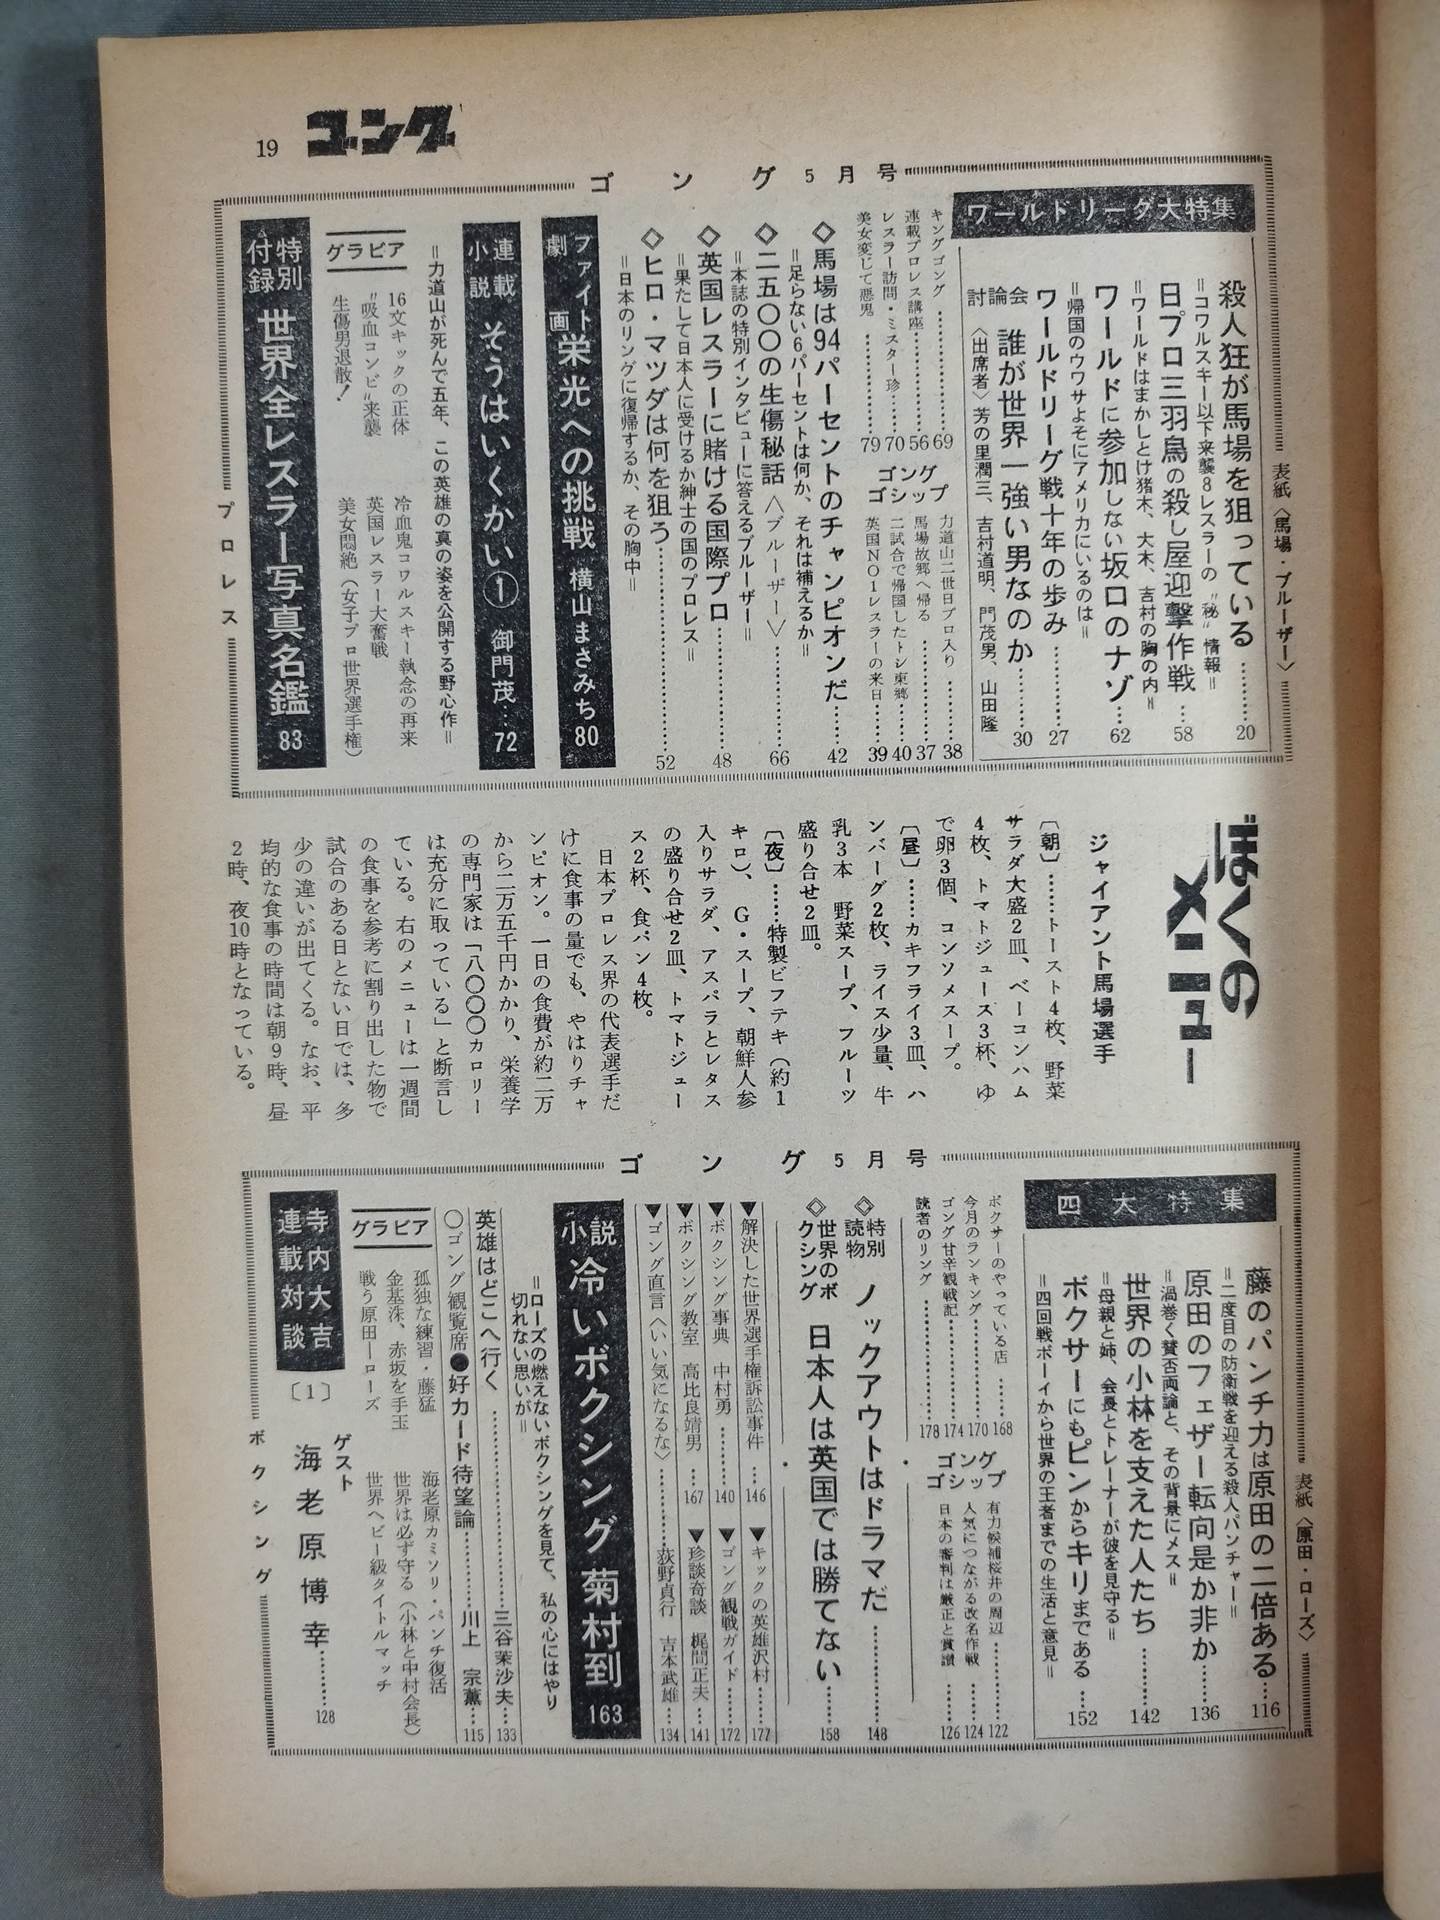 19
ゴング
ゴング5月号
表紙〈馬場・ブルーザー〉
ワールドリーグ大特集
殺人狂が馬場を狙っている………20
＝コワルスキー以下来襲8レスラーの〝秘〟情報＝
日プロ三羽烏の殺し屋迎撃作戦…58
＝ワールドはまかしとけ猪木、大木、吉村の胸の内＝
ワールドに参加しない坂口のナゾ…62
＝帰国のウワサよそにアメリカにいるのは＝
ワールドリーグ戦十年の歩み………27
討論会 誰が世界一強い男なのか………30
〈出席者〉芳の里潤三、吉村道明、門茂男、山田隆
キングゴング………69
連載プロレス講座………56
レスラー訪問・ミスター珍………70
美女変じて悪鬼………79
ゴングゴシップ
力道山二世日プロ入り………38
馬場故郷へ帰る………37
二試合で帰国したトシ東郷………40
英国NO1レスラーの来日………39
◇馬場は94パーセントのチャンピオンだ……42
＝足らない6パーセントは何か、それは補えるか＝
◇二五〇〇の生傷秘話〈ブルーザー〉……66
＝本誌の特別インタビューに答えるブルーザー＝
◇英国レスラーに賭ける国際プロ………48
＝果たして日本人に受けるか紳士の国のプロレス＝
◇ヒロ・マツダは何を狙う………52
＝日本のリングに復帰するか、その胸中＝
ファイト劇画 栄光への挑戦 横山まさみち 80
連載小説 そうはいくかい① 御門茂…72
＝力道山が死んで五年、この英雄の真の姿を公開する野心作＝
グラビア
16文キックの正体
〝吸血コンビ〟来襲
生傷男退散！
冷血鬼コワルスキー執念の再来
英国レスラー大奮戦
美女悶絶（女子プロ世界選手権）
特別付録 世界全レスラー写真名鑑 83
プロレス
ぼくのメニュー
ジャイアント馬場選手
〔朝〕……トースト4枚、野菜
サラダ大盛2皿、ベーコンハム
4枚、トマトジュース3杯、ゆ
で卵3個、コンソメスープ。
〔昼〕……カキフライ3皿、ハ
ンバーグ2枚、ライス少量、牛
乳3本 野菜スープ、フルーツ
盛り合せ2皿。
〔夜〕……特製ビフテキ（約1
キロ）、G・スープ、朝鮮人参
入りサラダ、アスパラとレタス
の盛り合せ2皿、トマトジュー
ス2杯、食パン4枚。
日本プロレス界の代表選手だ
けに食事の量でも、やはりチャ
ンピオン。一日の食費が約二万
から二万五千円かかり、栄養学
の専門家は「八〇〇〇カロリー
は充分に取っている」と断言し
ている。右のメニューは一週間
の食事を参考に割り出した物で
試合のある日とない日では、多
少の違いが出てくる。なお、平
均的な食事の時間は朝9時、昼
2時、夜10時となっている。
ゴング5月号
表紙〈原田・ローズ〉
四大特集
藤のパンチ力は原田の二倍ある…116
＝二度目の防衛戦を迎える殺人パンチャー＝
原田のフェザー転向是か非か……136
＝渦巻く賛否両論と、その背景にメス＝
世界の小林を支えた人たち………142
＝母親と姉、会長とトレーナーが彼を見守る＝
ボクサーにもピンからキリまである…152
＝四回戦ボーイから世界の王者までの生活と意見＝
ボクサーのやっている店……168
今月のランキング………170
ゴング甘辛観戦記………174
読者のリング………178
ゴングゴシップ
有力候補桜井の周辺……122
人気につながる改名作戦……124
日本の審判は厳正と賞讃……126
◇特別読物 ノックアウトはドラマだ………148
◇世界のボクシング 日本人は英国では勝てない……158
▼解決した世界選手権訴訟事件…146
▼ボクシング事典 中村勇………140
▼ボクシング教室 高比良靖男…167
▼ゴング直言〈いい気になるな〉………荻野貞行 吉本武雄…134
▼キックの英雄沢村……177
▼ゴング観戦ガイド……172
▼珍談奇談 梶間正夫…141
小説 冷いボクシング 菊村到 163
＝ローズの燃えないボクシングを見て、私の心にはやり
切れない思いが＝
英雄はどこへ行く………三谷茉沙夫…133
〇ゴング観覧席●好カード待望論………川上 宗薫…115
グラビア
孤独な練習・藤猛
金基洙、赤坂を手玉
戦う原田―ローズ
海老原カミソリ・パンチ復活
世界は必ず守る（小林と中村会長）
世界ヘビー級タイトルマッチ
寺内大吉連載対談〔1〕
ゲスト 海老原博幸………128
ボクシング